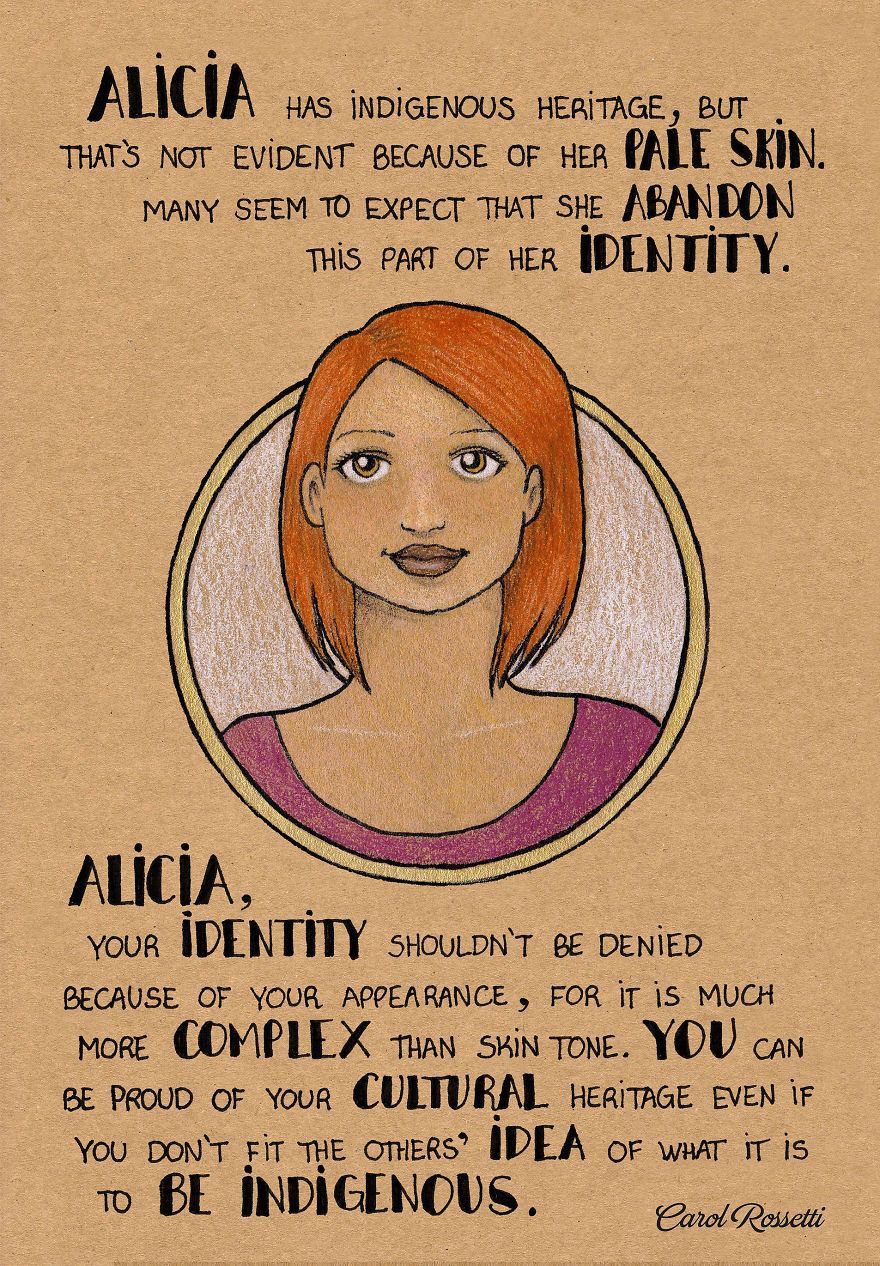 ALICIA HAS INDIGENOUS HERITAGE, BUT
THAT'S NOT EVIDENT BECAUSE OF HER PALE SKIN.
MANY SEEM TO EXPECT THAT SHE ABANDON
THIS PART OF HER IDENTITY.
ALICIA,
YOUR IDENTITY SHOULDN'T BE DENIED
BECAUSE OF YOUR APPEARANCE, FOR IT IS MUCH
MORE COMPLEX THAN SKIN TONE. YOU CAN
BE PROUD OF YOUR CULTURAL HERITAGE EVEN IF
YOU DON'T FIT THE OTHERS' IDEA OF WHAT IT IS
TO BE INDIGENOUS.
Carol Rossetti